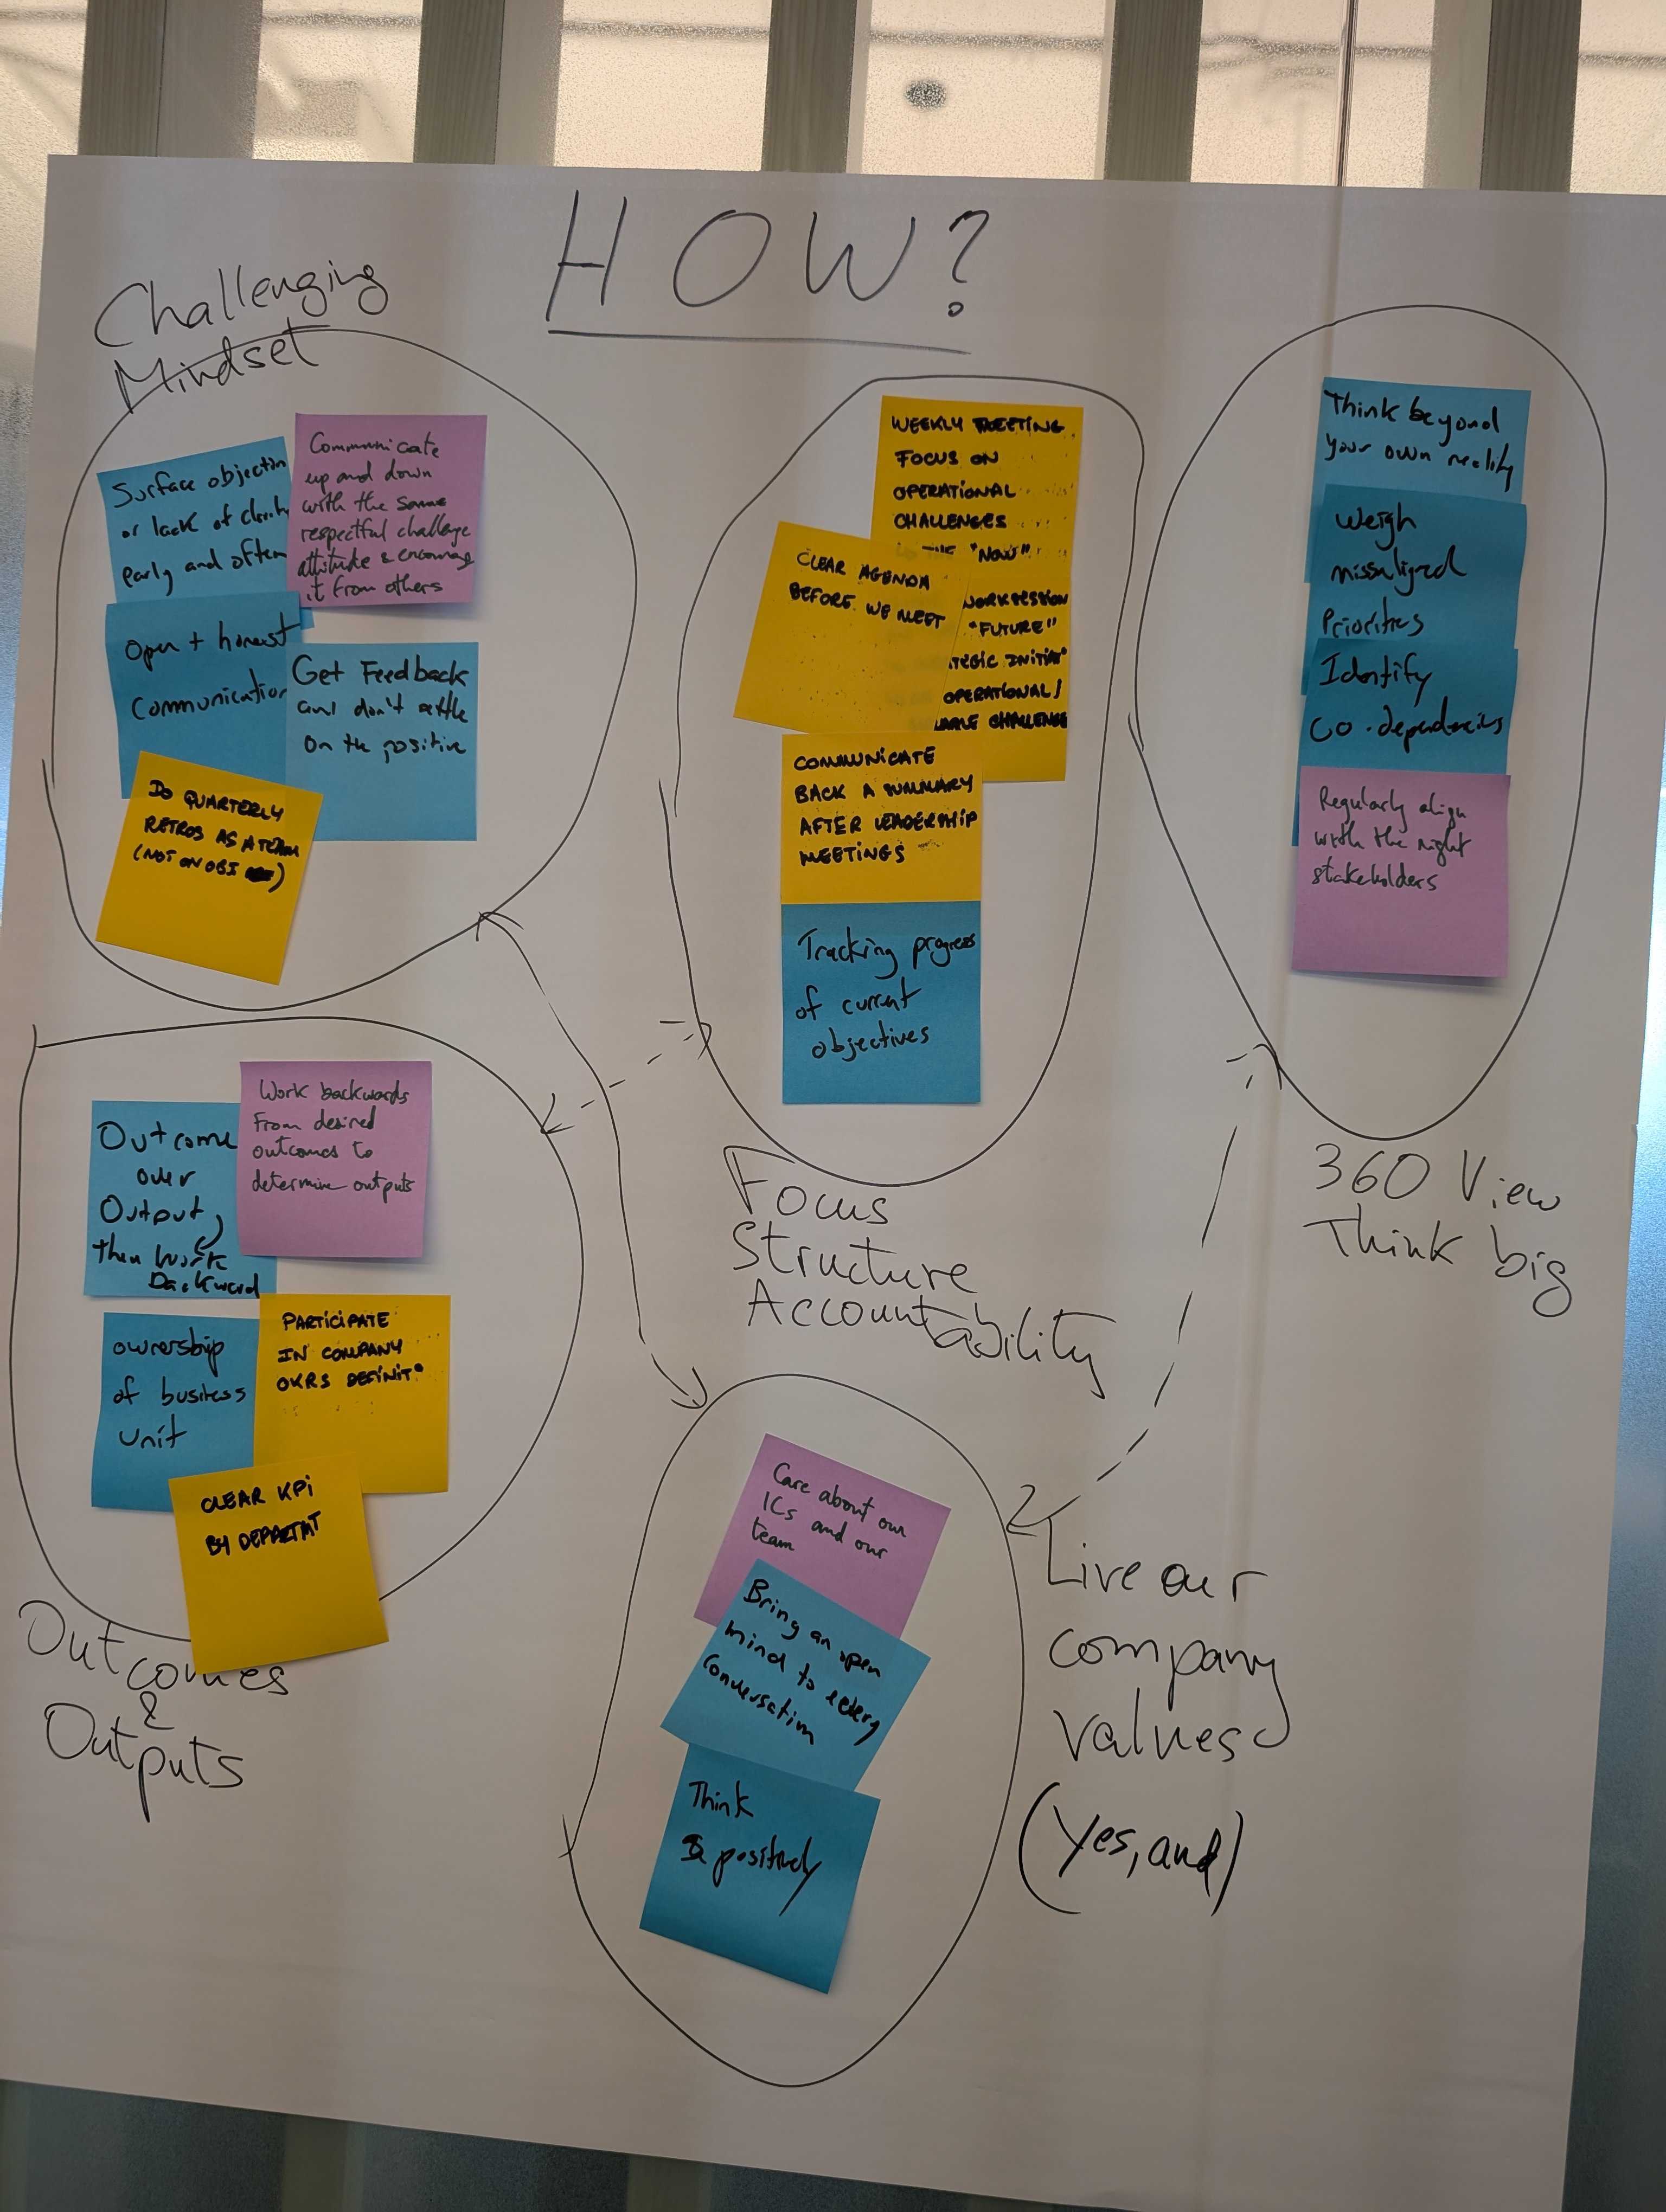 HOW?
Challenging
Mindset
Surface objection
or lack of clarity
early and often
Communicate
up and down
with the same
respectful challenge
attitude & encourage
it from others
Open + honest
Communication
Get Feedback
and don't settle
on the positive
DO QUARTERLY
RETROS AS A TEAM
(NOT ON OBI)
WEEKLY MEETING
FOCUS ON
OPERATIONAL
CHALLENGES
THE "NOW"
CLEAR AGENDA
BEFORE WE MEET
WORKSESSION
"FUTURE"
ATEGIC INITIAT°
OPERATIONAL/
CHALLENGE
COMMUNICATE
BACK A SUMMARY
AFTER LEADERSHIP
MEETINGS
Tracking progress
of current
objectives
Focus
Structure
Accountability
Think beyond
your own reality
Weigh
missaligned
Priorities
Identify
Co-dependencies
Regularly align
with the right
stakeholders
360 View
Think big
Outcome
over
Output,
then work
Backward
Work backwards
From desired
outcomes to
determine outputs
ownership
of business
unit
PARTICIPATE
IN COMPANY
OKRS DEFINIT°
CLEAR KPI
BY DEPARTMT
Outcomes
&
Outputs
Care about our
ICs and our
team
Bring an open
mind to every
conversation
Think
positively
Live our
company
values
(Yes, and)